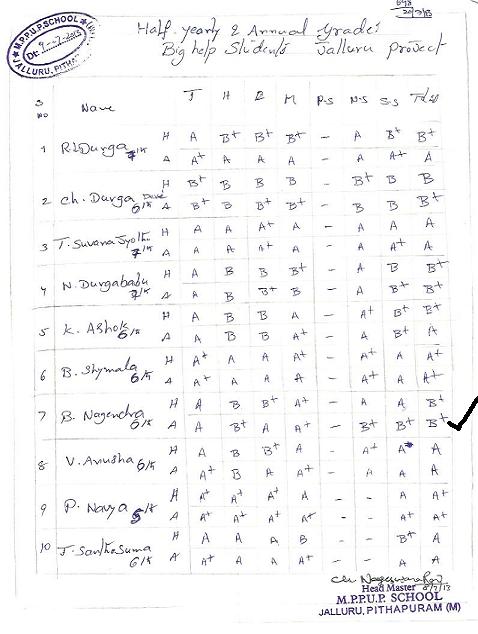 M.P.U.P. SCHOOL
Dt: 9-7-2013
JALLURU, PITHA
20/7/13
Half yearly & Annual Grades
Big help Students Jalluru Project
S NO Name T H E M P.S N.S S.S Total
1 R.L.Durga 7th H A B+ B+ B+ – A B+ B+
A A+ A A A – A A+ A
2 Ch. Durga Devi 6th H B+ B B B – B+ B B
A B+ B B+ B+ – B B B+
3 T. Suvana Jyothi 7th H A A A+ A – A A A
A A A A+ A – A A+ A
4 N. Durgababu 7th H A B B B+ – A B B+
A A B B+ B – A B+ B+
5 K. Ashok 6th H A B B A – A+ B+ B+
A A B B A+ – A B+ A
6 B. Shymala 6th H A+ A A A+ – A+ A A+
A A+ A A A – A+ A A+
7 B. Nagendra 6th H A B B+ A+ – A A B+
A A B+ A A+ – B+ B+ B+
8 V. Anusha 6th H A B B+ A – A+ A+ A
A A+ B A A+ – A A A
9 P. Navya 6th H A+ A+ A+ A – – A A+
A A+ A+ A+ A+ – – A+ A+
10 J. Santhasuma 6th H A A A B – – B+ A
A A+ A A A+ – – A A
Ch. Nageswara Rao
Head Master 9/7/13
M.P.U.P. SCHOOL
JALLURU, PITHAPURAM (M)